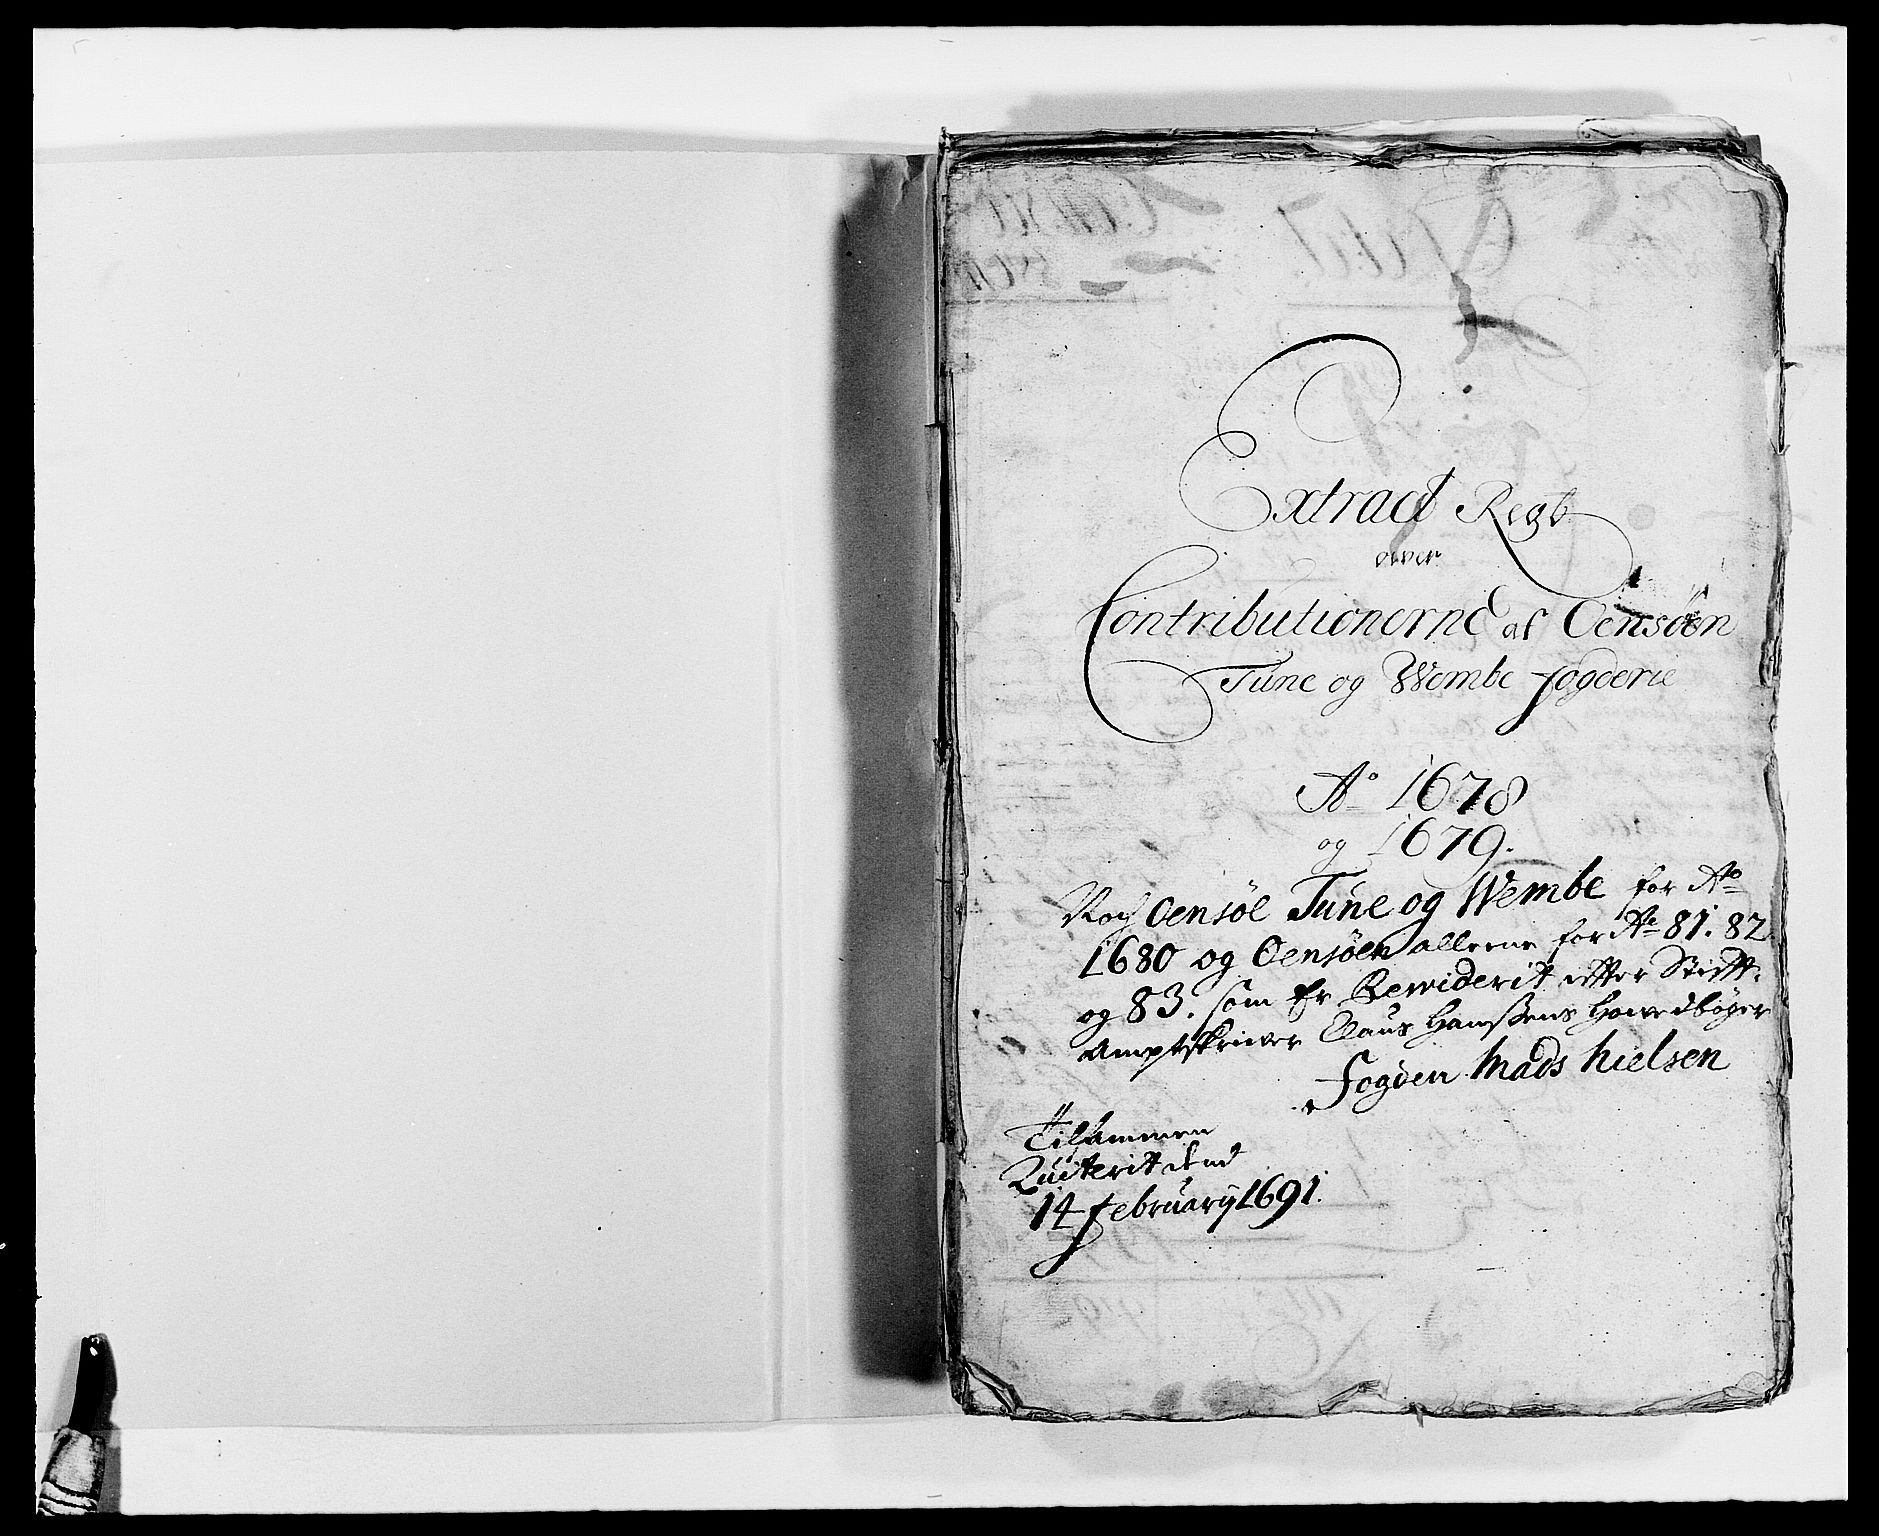 Extract Regb
over
Contributionerne af Oensöen
Tune og Wembe fogderie
Ao 1678
og 1679.
Noch Oensöe Tune og Wembe for Ao
1680 og Oensöen alleene for Ao 81. 82
og 83. som Er Rewiderit effter Stifft-
Amptskriver Claus Hanssens Howedböger
fogden Mads Nielsen
Tilsammen
Quiterit dend
14 february 1691.